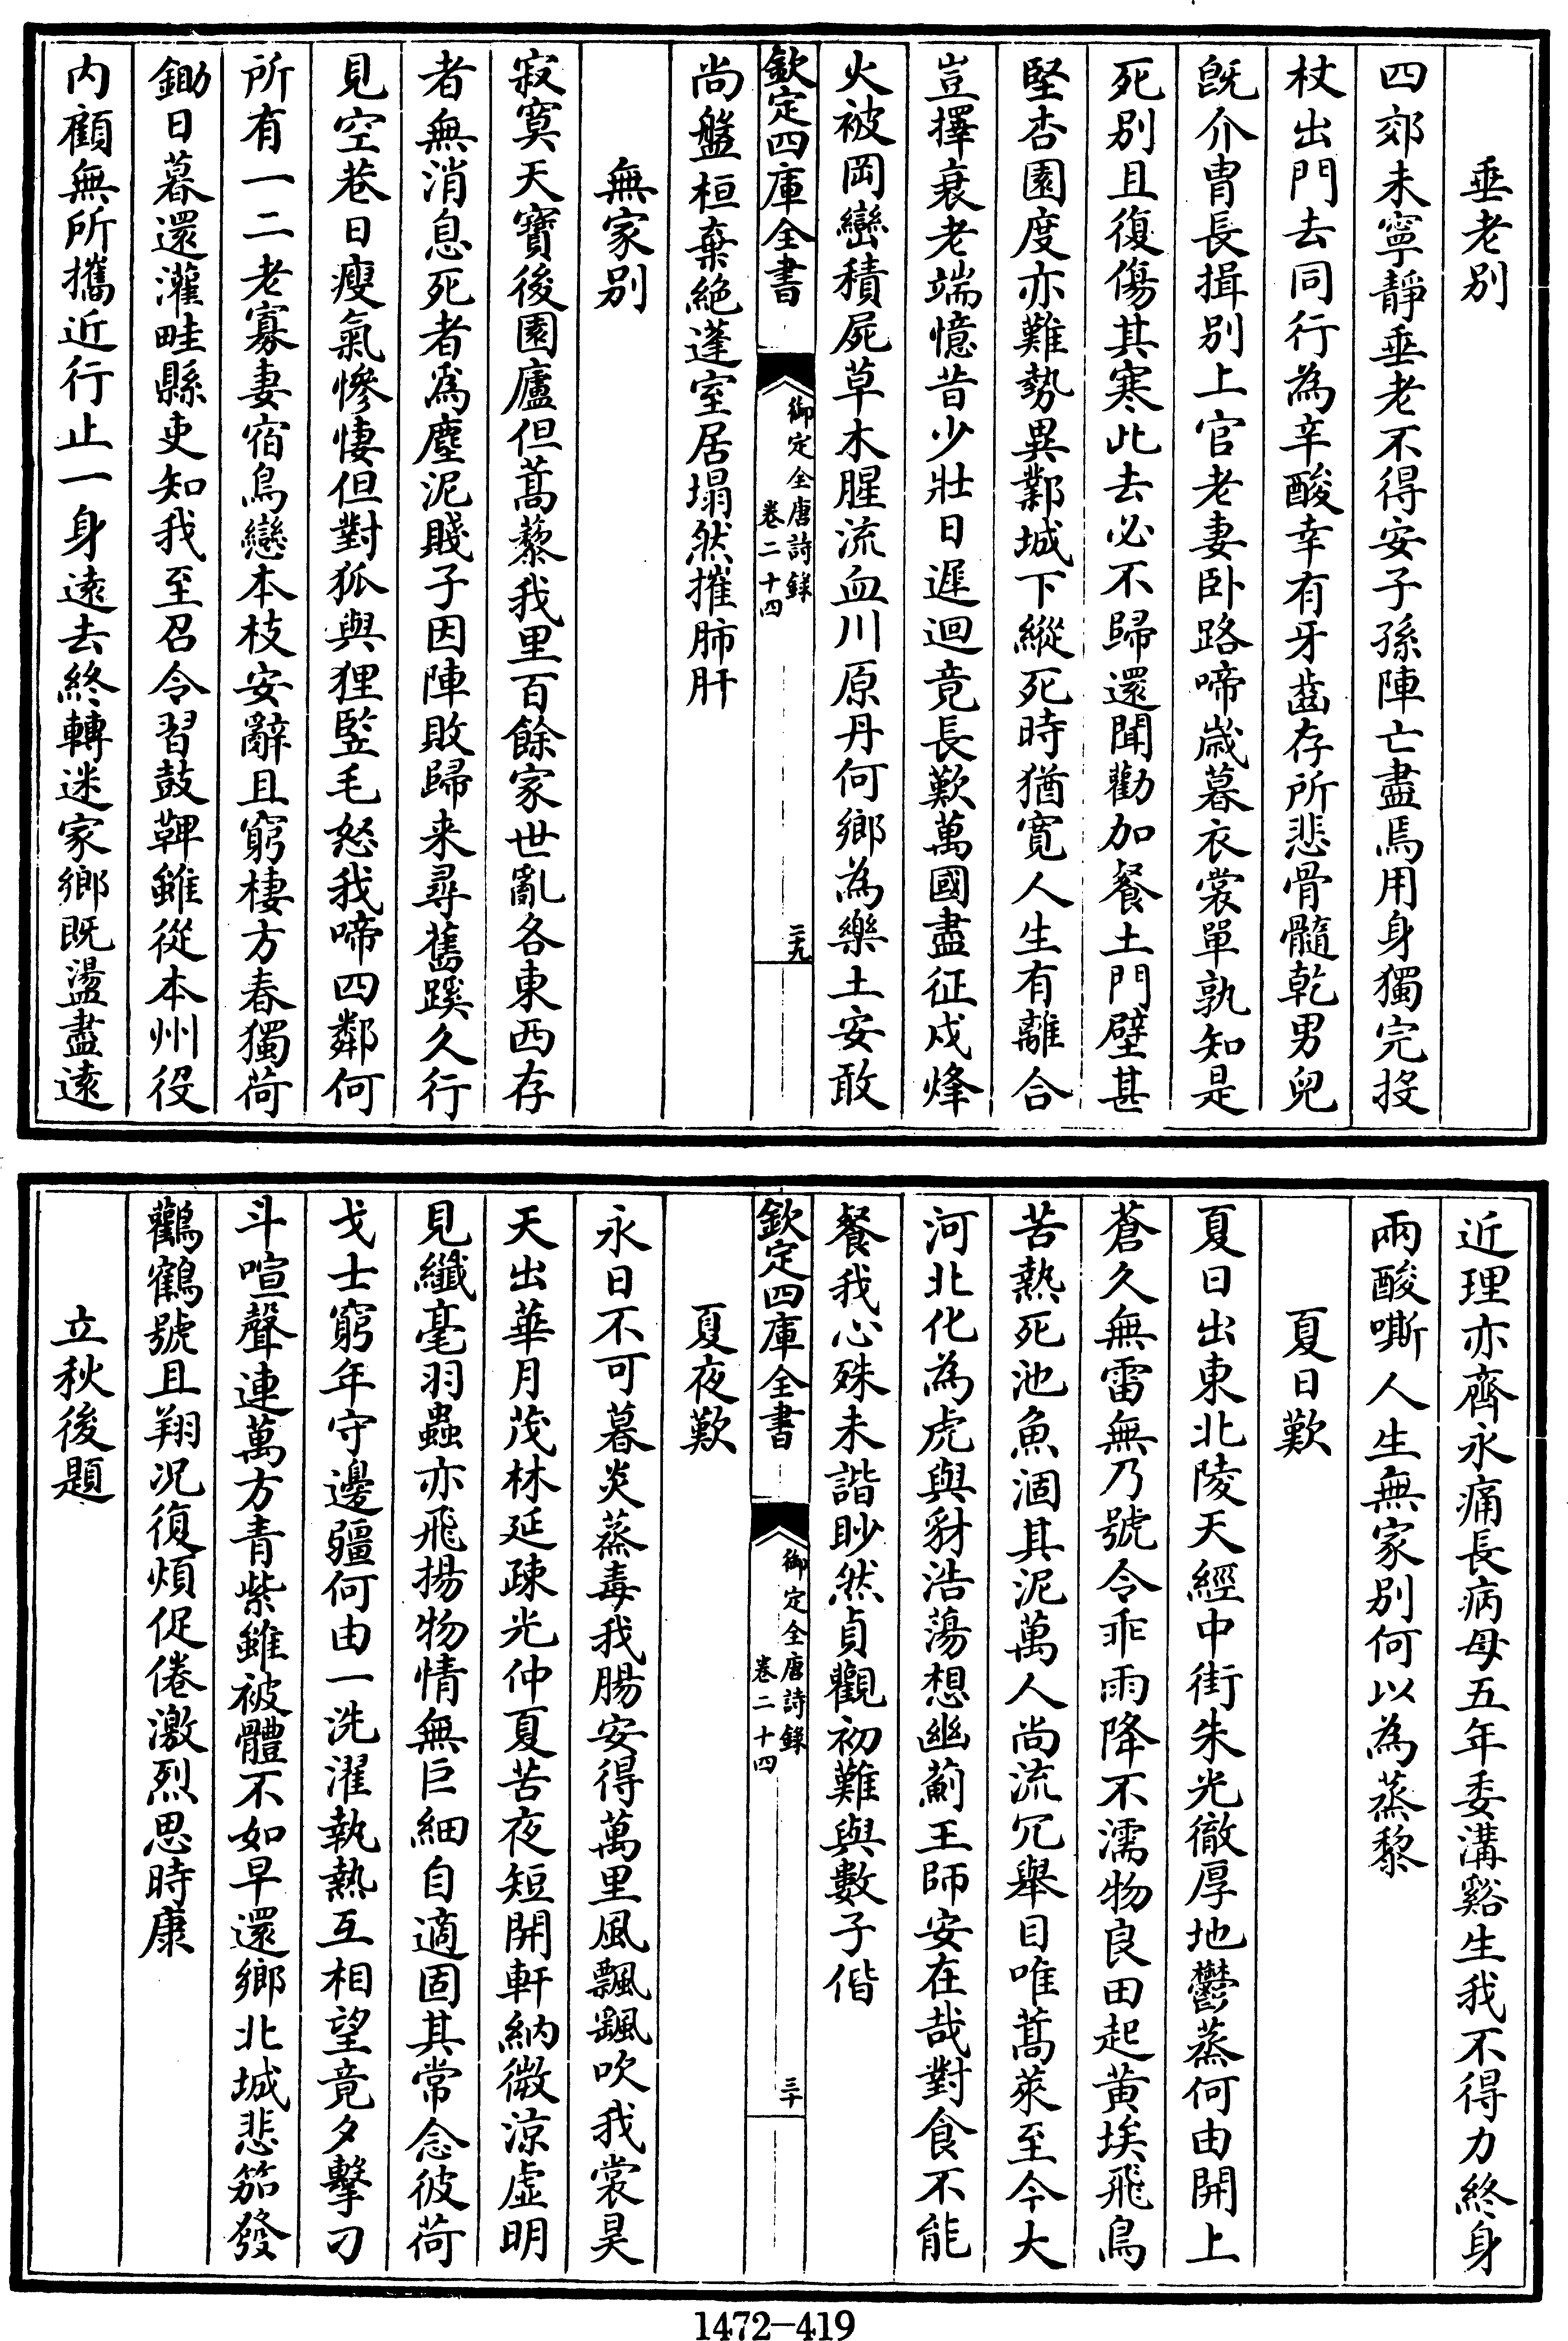 垂老别
四郊未寧靜垂老不得安子孫陣亡盡焉用身獨完投
杖出門去同行為辛酸幸有牙齒存所悲骨髓乾男兒
旣介胄長揖别上官老妻卧路啼歳暮衣裳單孰知是
死别且復傷其寒此去必不歸還聞勸加餐土門壁甚
堅杏園度亦難勢異鄴城下縱死時猶寛人生有離合
豈擇衰老端憶昔少壯日遲迴竟長歎萬國盡征戍烽
火被岡巒積屍草木腥流血川原丹何鄉為樂土安敢
欽定四庫全書
御定全唐詩錄
卷二十四
二九
尚盤桓棄絶蓬室居塌然摧肺肝
無家别
寂寞天寳後園廬但蒿藜我里百餘家世亂各東西存
者無消息死者爲塵泥賤子因陣敗歸来尋舊蹊久行
見空巷日瘦氣慘悽但對狐與狸竪毛怒我啼四鄰何
所有一二老寡妻宿鳥戀本枝安辭且窮棲方春獨荷
鋤日暮還灌畦縣吏知我至召令習鼓鞞雖從本州役
内顧無所攜近行止一身遠去終轉迷家鄉既盪盡遠
近理亦齊永痛長病母五年委溝谿生我不得力終身
兩酸嘶人生無家别何以為蒸黎
夏日歎
夏日出東北陵天經中街朱光徹厚地鬱蒸何由開上
蒼久無雷無乃號令乖雨降不濡物良田起黄埃飛鳥
苦熱死池魚涸其泥萬人尚流冗舉目唯蒿萊至今大
河北化為虎與豺浩蕩想幽薊王師安在哉對食不能
餐我心殊未諧眇然貞觀初難與數子偕
欽定四庫全書
御定全唐詩錄
卷二十四
三十
夏夜歎
永日不可暮炎蒸毒我腸安得萬里風飄飖吹我裳昊
天出華月茂林延疎光仲夏苦夜短開軒納微涼虚明
見纖毫羽蟲亦飛揚物情無巨細自適固其常念彼荷
戈士窮年守邊疆何由一洗濯執熱互相望竟夕擊刁
斗喧聲連萬方青紫雖被體不如早還鄉北城悲笳發
鸛鶴號且翔况復煩促倦激烈思時康
立秋後題
1472-419